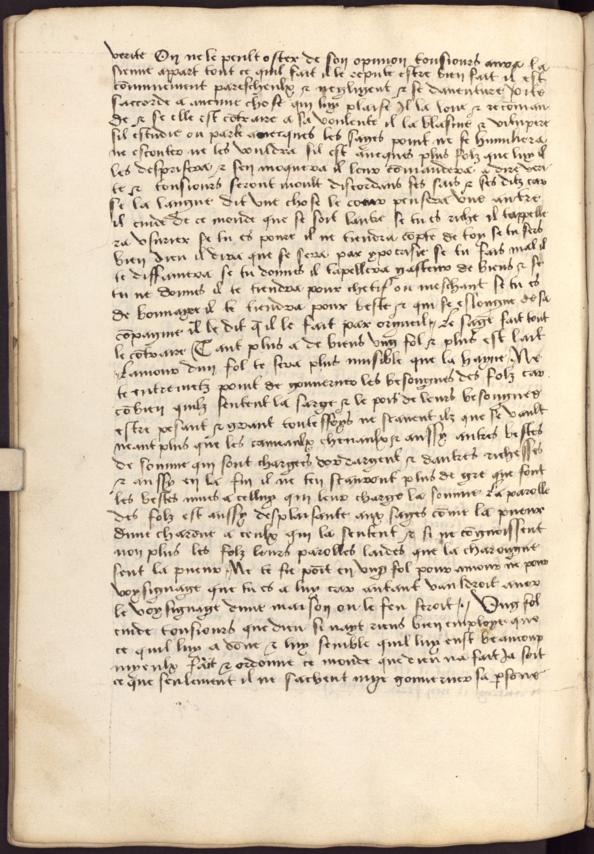 verite On ne le peult oster de son opinion tousiours aura la
sienne appart tout ce quil fait il le repute estre bien fait il est
communement parescheulx & negligent & se
saccorde a aucune chose qui luy plaise Il la loue & recoman
de & se elle est cotraire a sa voulente il la blasme & vitupere
sil estudie ou parle avecques les sages point ne se humiliera
ne escouter ne les vouldra sil est avecques plus folz que luy il
les desprisera & sen moquera il leur comandera a dire veri
te & tousiours seront moult discordans ses fais & ses ditz car
se la langue dit une chose le coeur pensera une autre
il cuide de ce monde que se soit Se tu es riche il tappelle
ra usurier se tu es poure il ne tiendra copte de toy se tu fers
bien dieu il dira que se sera par ypocrisie se tu fais mal il
te diffamera se tu donnes il tapellera gasteur de biens & se
tu ne donnes il te tiendra pour chetif ou meschant se tu es
de bonnayre il te tiendra pour beste & qui se eslongne de sa
copaigne il le dit quil le fait par orgueil Le sage fait tout
le cotraire Tant plus a de biens ung fol & plus est lait
Lamour dun fol te sera plus nuisible que la hayne Ne
te entremetz point de gouverner les besongnes des folz car
cobien quilz sentent la sarge & le pois de leurs besongnes
estre pesant & grant touteffoys ne scavent ilz que se vault
neant plus que les cameaulx chevaulx & aussy autres bestes
de somme qui sont chargees dor dargent & dautres richesses
& aussy en la fin il ne ten scauront plus de gre que font
les bestes mues a celluy qui leur charge la somme La parolle
des folz est aussy desplaisante aux sages come la pueur
dune charone a ceulx qui la sentent & si ne cognoissent
non plus les folz leurs parolles laides que la charongne
sent la pueur Ne te fie poit en ung fol pour amour ne pour
voysignage que tu es a luy car autant vauldroit avoir
le voysignage dune maison ou le feu seroit Ung fol
cuide tousiours que dieu si nayt riens bien employe que
ce quil luy a done & luy semble quil luy eust beaucoup
myeulx fait & ordonne ce monde que dieu na fait Ja soit
ce que seulement il ne sachent mye gouverner sa psone